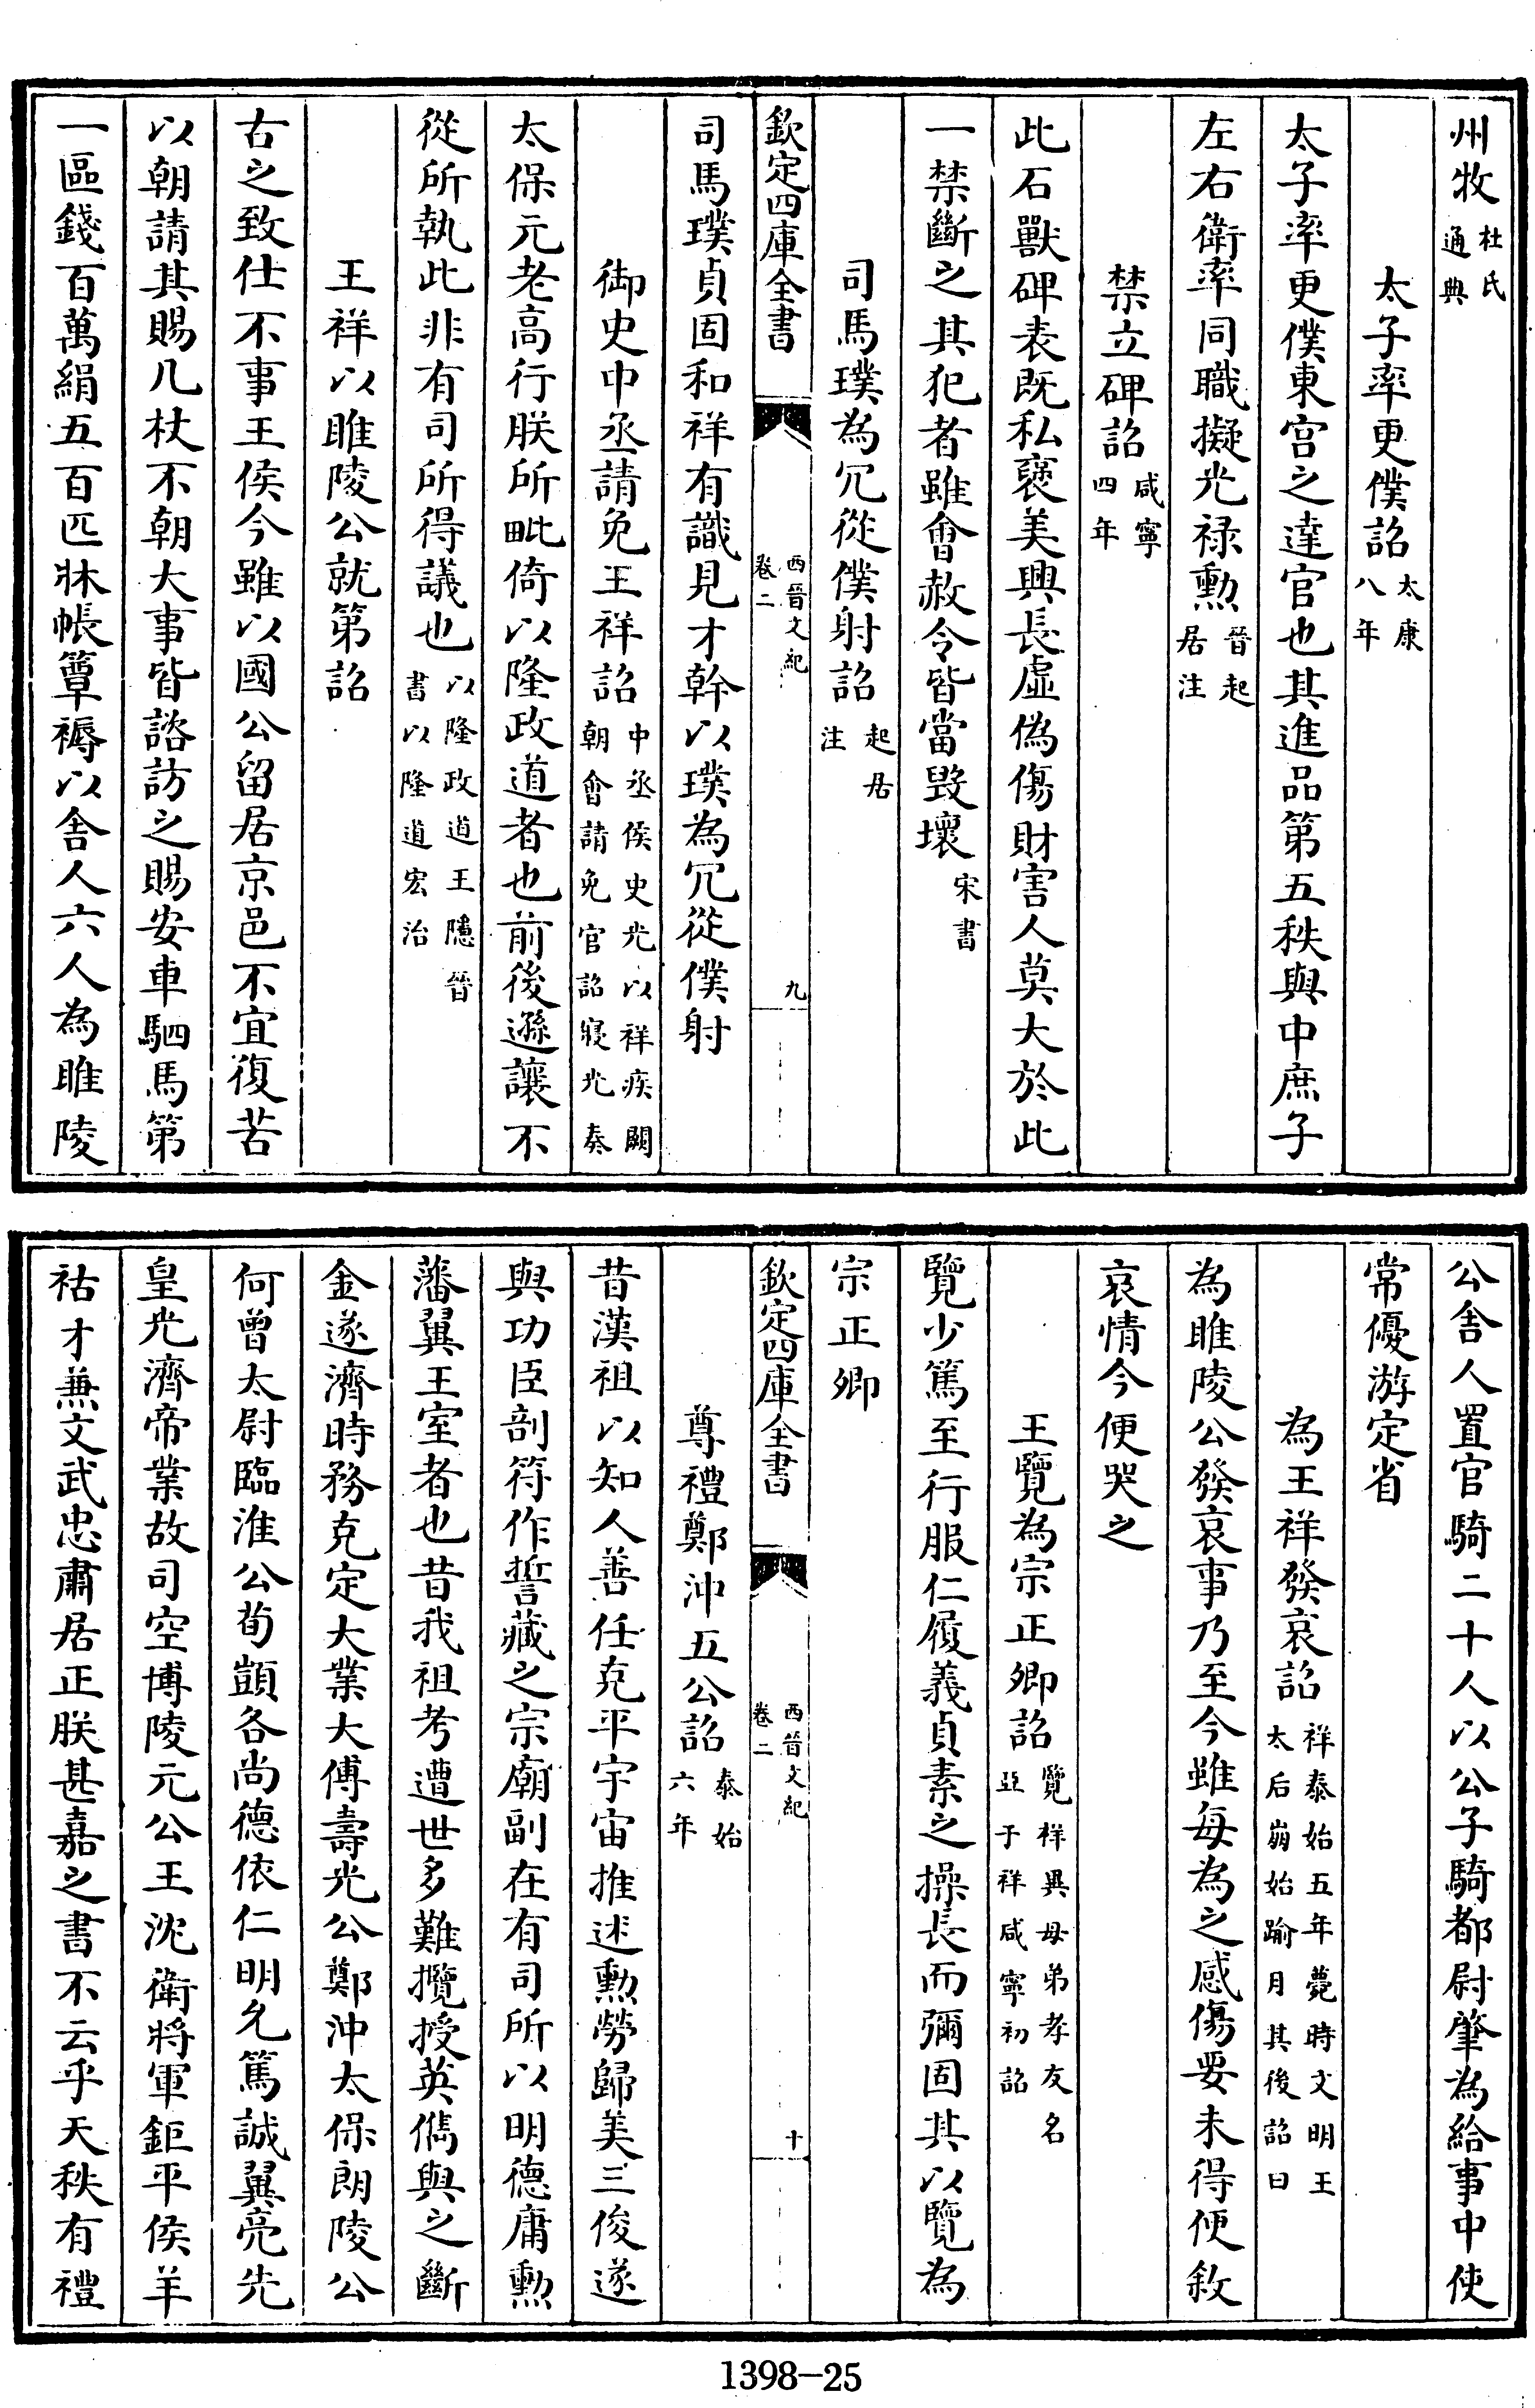 州牧杜氏通典
太子率更僕詔太康八年
太子率更僕東宮之達官也其進品第五秩與中庶子
左右衛率同職擬光祿勲晉起居注
禁立碑詔咸寧四年
此石獸碑表既私褒美興長虛偽傷財害人莫大於此
一禁斷之其犯者雖會赦令皆當毀壞宋書
司馬璞為冗從僕射詔起居注
欽定四庫全書
西晉文紀
卷二
九
司馬璞貞固和祥有識見才幹以璞為冗從僕射
御史中丞請免王祥詔中丞侯史光以祥疾闕朝會請免官詔寢光奏
太保元老高行朕所毗倚以隆政道者也前後遜讓不
從所執此非有司所得議也以隆政道王隱晉書以隆道宏治
王祥以睢陵公就第詔
古之致仕不事王侯今雖以國公留居京邑不宜復苦
以朝請其賜几杖不朝大事皆諮訪之賜安車駟馬第
一區錢百萬絹五百匹牀帳簟褥以舍人六人為睢陵
公舍人置官騎二十人以公子騎都尉肇為給事中使
常優游定省
為王祥發哀詔祥泰始五年薨時文明王太后崩始踰月其後詔曰
為睢陵公發哀事乃至今雖每為之感傷要未得便敘
哀情今便哭之
王覽為宗正卿詔覽祥異母弟孝友名亞于祥咸寧初詔
覽少篤至行服仁履義貞素之操長而彌固其以覽為
宗正卿
欽定四庫全書
西晉文紀
卷二
十
尊禮鄭沖五公詔泰始六年
昔漢祖以知人善任克平宇宙推述勲勞歸美三俊遂
與功臣剖符作誓藏之宗廟副在有司所以明德庸勲
藩翼王室者也昔我祖考遭世多難攬授英儁與之斷
金遂濟時務克定大業大傅壽光公鄭沖太保朗陵公
何曾太尉臨淮公荀顗各尚德依仁明允篤誠翼亮先
皇光濟帝業故司空博陵元公王沈衛將軍鉅平侯羊
祜才兼文武忠肅居正朕甚嘉之書不云乎天秩有禮
1398-25